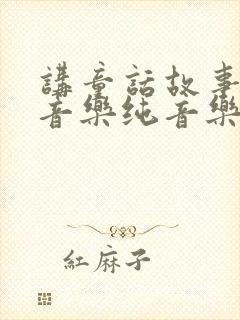 講童話故事
音樂纯音樂
紅麻子